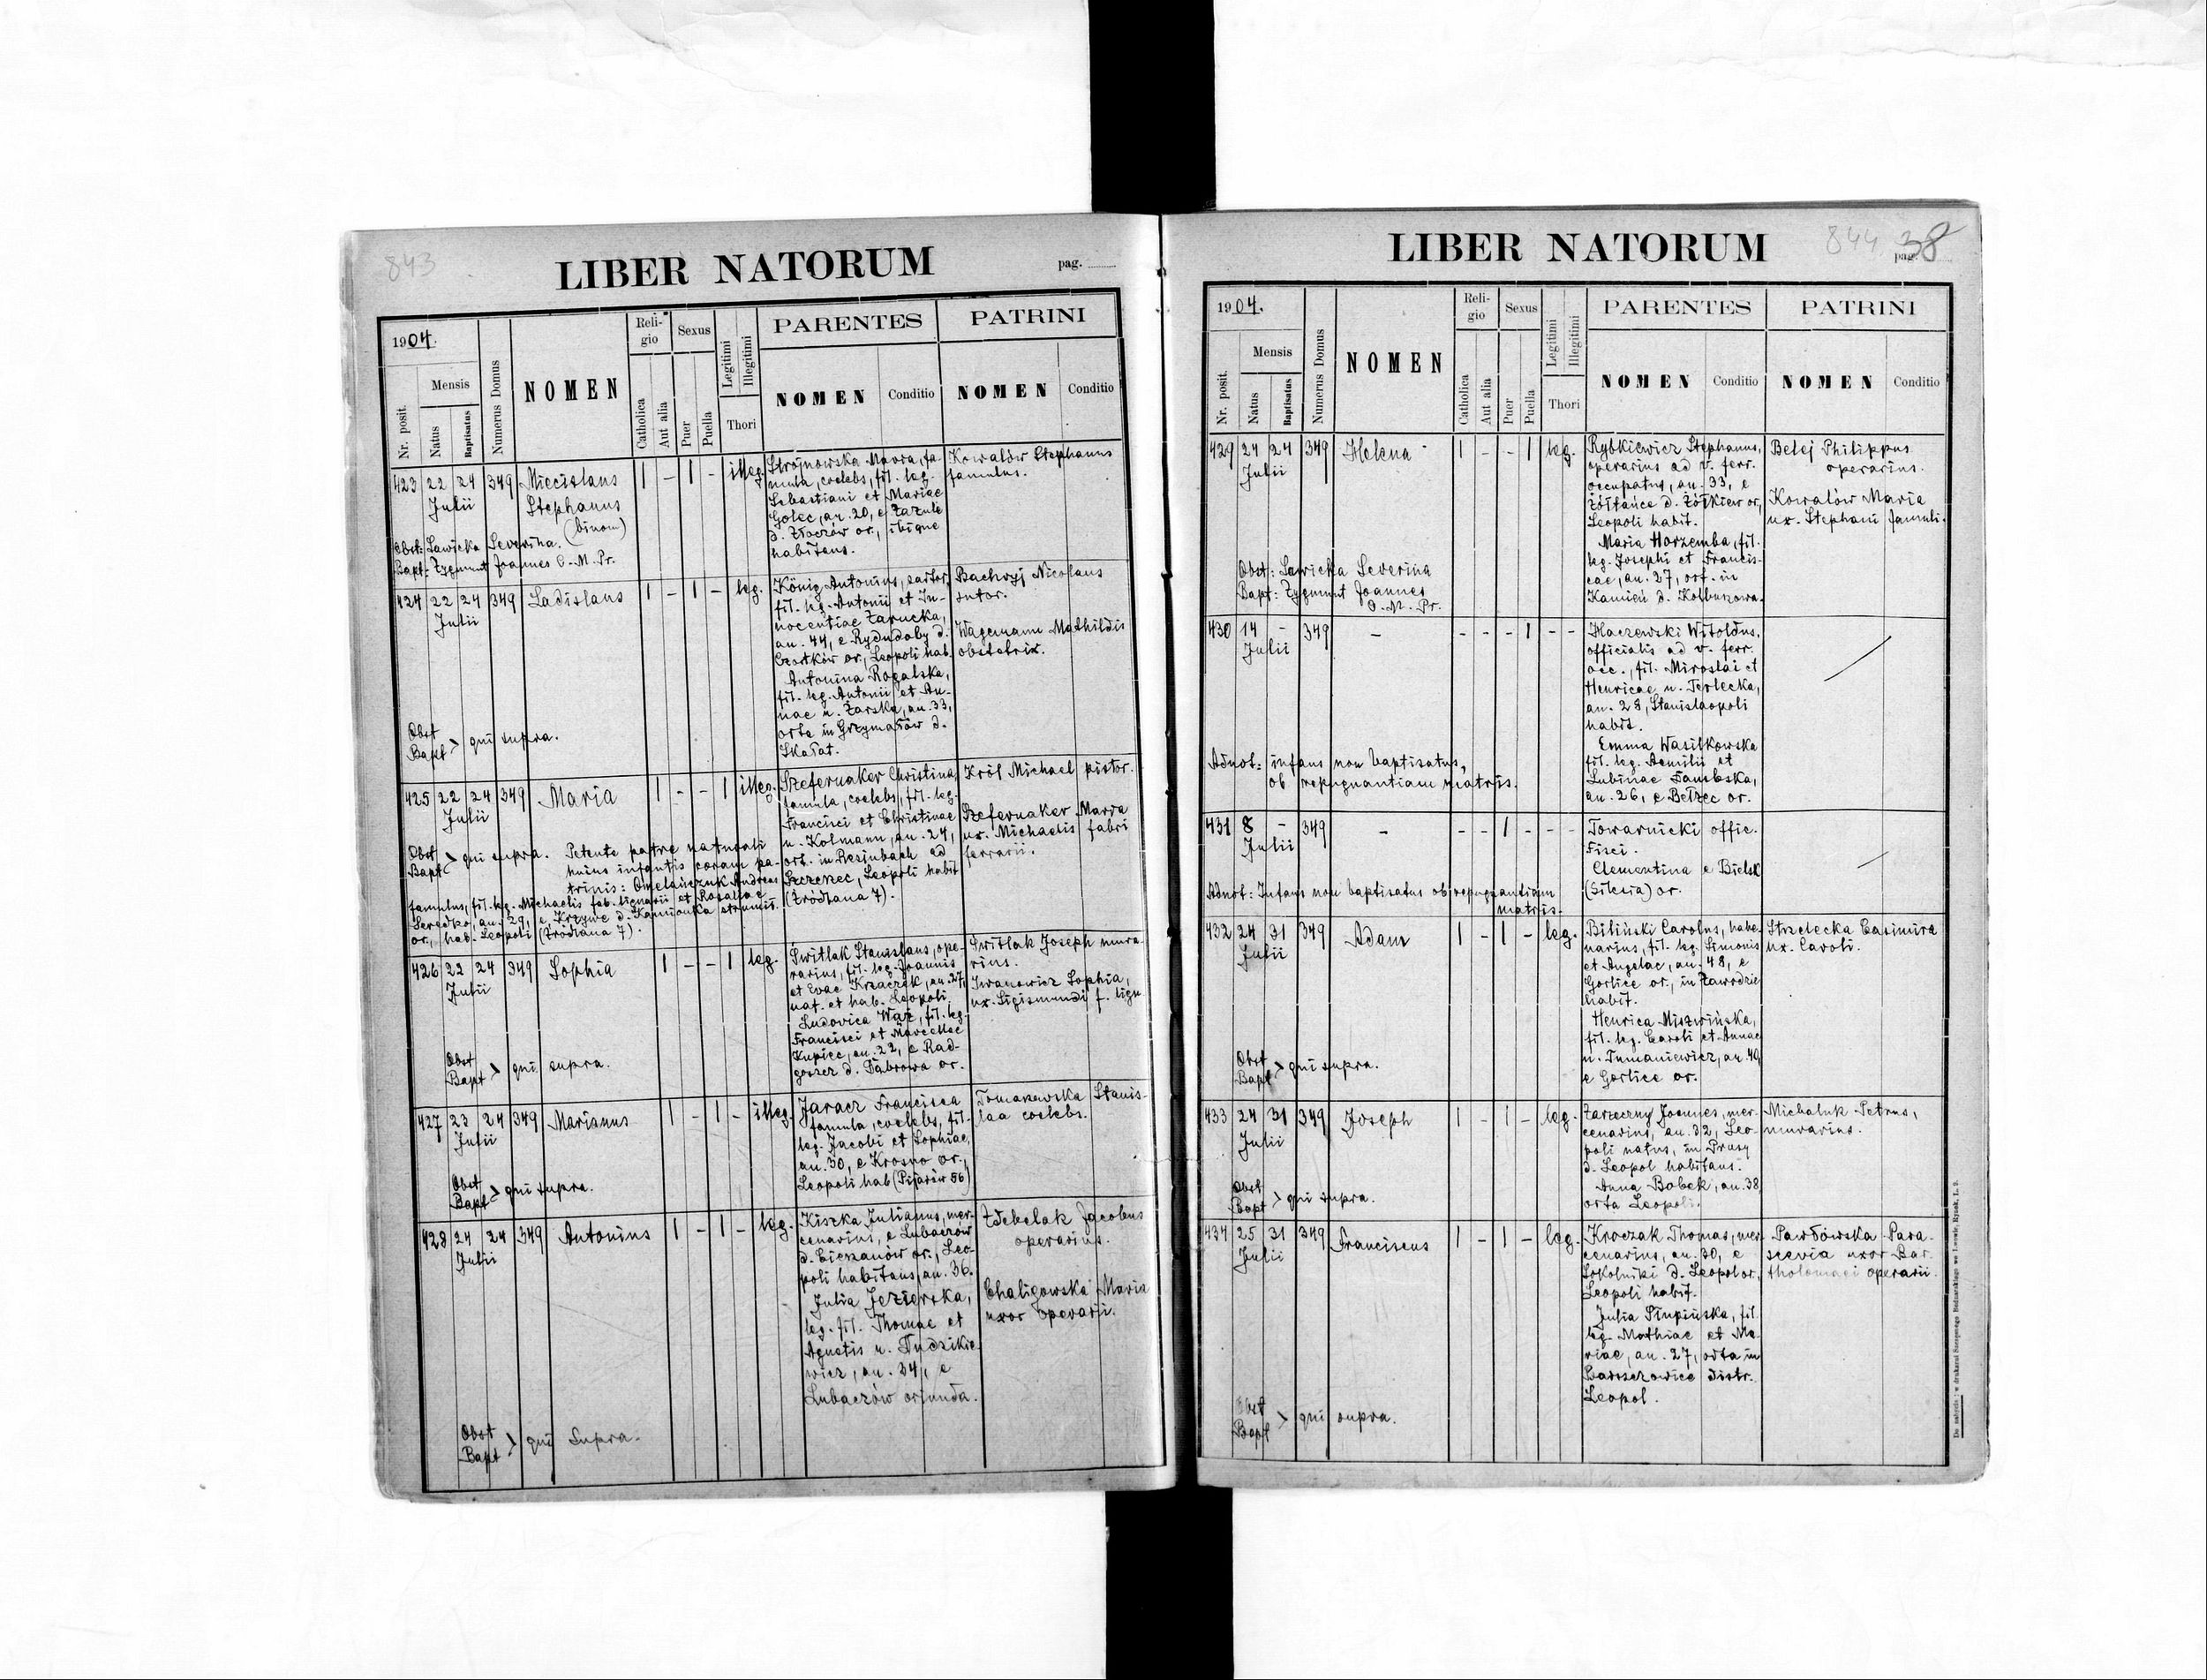 843
LIBER NATORUM
pag.
1904.
Nr. posit.
Mensis
Natus
Baptisatus
Numerus Domus
NOMEN
Reli-
gio
Catholica
Aut alia
Sexus
Puer
Puella
Legitimi
Illegitimi
Thori
PARENTES
NOMEN
Conditio
PATRINI
NOMEN
Conditio
423 22 24 349 Miecislaus 1 - 1 - illeg.
Julii
Stephanus
(binom)
Obst: Sawicka Severina.
Bapt: Zygmunt Joannes C. M. Pr.
Strojnowska Maria, fa-
mula, coelebs, fil. leg.
Sebastiani et Mariae
Golec, an. 20, e Zazule
d. Złoczów or., ibique
habitans.
Kowalów Stephanus
famulus.
424 22 24 349 Ladislaus 1 - 1 - leg.
Julii
König Antonius, sartor,
fil. leg. Antonii et In-
nocentiae Zarucka,
an. 44, e Rydoduby d.
Czortków or., Leopoli hab.
Antonina Rogalska,
fil. leg. Antonii et An-
nae n. Żarska, an. 33,
orta in Grzymałów d.
Skałat.
Bachryj Nicolaus
sutor.
Wagemann Mathildis
obstetrix.
Obst
Bapt > qui supra.
425 22 24 349 Maria 1 - - 1 illeg.
Julii
Szefernaker Christina,
famula, coelebs, fil. leg.
Francisci et Christinae
n. Kolmann, an. 24,
ort. in Rosinbach ad
Szczerzec, Leopoli habit
(Źródlana 7).
Król Michael pistor.
Szefernaker Maria
ux. Michaelis fabri
ferrarii.
Obst
Bapt > qui supra. Petente patre naturali
huius infantis coram pa-
trinis: Omelańczuk Andreas
famulus, fil. leg. Michaelis fab. lignarii et Rosaliae
Seredko, an. 29, e Krzywe d. Kamionka strumił.
or., hab. Leopoli (Źródlana 7).
426 22 24 349 Sophia 1 - - 1 leg.
Julii
Świtlak Stanislaus, ope-
rarius, fil. leg. Joannis
et Evae Krzaczek, an. 27,
nat. et hab. Leopoli,
Ludovica Wąż, fil. leg.
Francisci et Marcellae
Kupiec, an. 22, e Rad-
goszcz d. Dąbrowa or.
Świtlak Joseph mura-
rius.
Iwanowicz Sophia,
ux. Sigismundi f. lign
Obst
Bapt > qui supra.
427 23 24 349 Marianus 1 - 1 - illeg.
Julii
Jaracz Francisca
famula, coelebs, fil.
leg. Jacobi et Sophiae,
an. 30, e Krosno or.,
Leopoli hab (Pijarów 56)
Tomaszewska Stanis-
laa coelebs.
Obst
Bapt > qui supra.
428 24 24 349 Antonius 1 - 1 - leg.
Julii
Kiszka Julianus, mer-
cenarius, e Lubaczów
d. Cieszanów or., Leo-
poli habitans, an. 36.
Julia Jezierska,
leg. fil. Thomae et
Agnetis n. Dudzikie-
wicz, an. 34, e
Lubaczów oriunda.
Zdebelak Jacobus
operarius.
Chaligowska Maria
uxor operarii.
Obst
Bapt > qui supra.
844 38
LIBER NATORUM
pag.
1904.
Nr. posit.
Mensis
Natus
Baptisatus
Numerus Domus
NOMEN
Reli-
gio
Catholica
Aut alia
Sexus
Puer
Puella
Legitimi
Illegitimi
Thori
PARENTES
NOMEN
Conditio
PATRINI
NOMEN
Conditio
429 24 24 349 Helena 1 - - 1 leg.
Julii
Rybkiewicz Stephanus,
operarius ad v. ferr.
occupatus, an. 33, e
Żółtańce d. Żółkiew or.,
Leopoli habit.
Maria Horzemba, fil.
leg. Josephi et Francis-
cae, an. 27, ort. in
Kamień d. Kolbuszowa.
Belej Philippus
operarius.
Kowalów Maria
ux. Stephani famuli.
Obst: Sawicka Severina
Bapt: Zygmunt Joannes
C. M. Pr.
430 14 - 349 - - - - 1 - -
Julii
Haczewski Witoldus,
officialis ad v. ferr.
occ., fil. Miroslai et
Henricae n. Terlecka,
an. 28, Stanislaopoli
habit.
Emma Wasilkowska
fil. leg. Aemilii et
Lubinae Dambska,
an. 26, e Bełzec or.
Adnot: infans non baptisatus,
ob repugnantiam matris.
431 8 - 349 - - - 1 - - -
Julii
Towarnicki offic.
Fisci.
Clementina e Bielsk
(Silesia) or.
Adnot: Infans non baptisatus ob repugnantiam
matris.
432 24 31 349 Adam 1 - 1 - leg.
Julii
Biliński Carolus, habe-
narius, fil. leg. Simonis
et Angelae, an. 48, e
Gorlice or., in Zawodzie
habit.
Henrica Miszwińska,
fil. leg. Caroli et Annae
n. Tumaniewicz, an. 40,
e Gorlice or.
Strzelecka Casimira
ux. Caroli.
Obst
Bapt > qui supra.
433 24 31 349 Joseph 1 - 1 - leg.
Julii
Zarzeczny Joannes, mer-
cenarius, an. 32, Leo-
poli natus, in Prusy
d. Leopol habitans.
Anna Bobek, an. 38,
orta Leopoli.
Michaluk Petrus,
murarius.
Obst
Bapt > qui supra.
434 25 31 349 Franciscus 1 - 1 - leg.
Julii
Kroczak Thomas, mer-
cenarius, an. 30, e
Sokolniki d. Leopol or.,
Leopoli habit.
Julia Słupińska, fil.
leg. Mathiae et Ma-
riae, an. 27, orta in
Barszczowice distr.
Leopol.
Pawłówska Para-
scevia uxor Bar-
tholomaei operarii.
Obst
Bapt > qui supra.